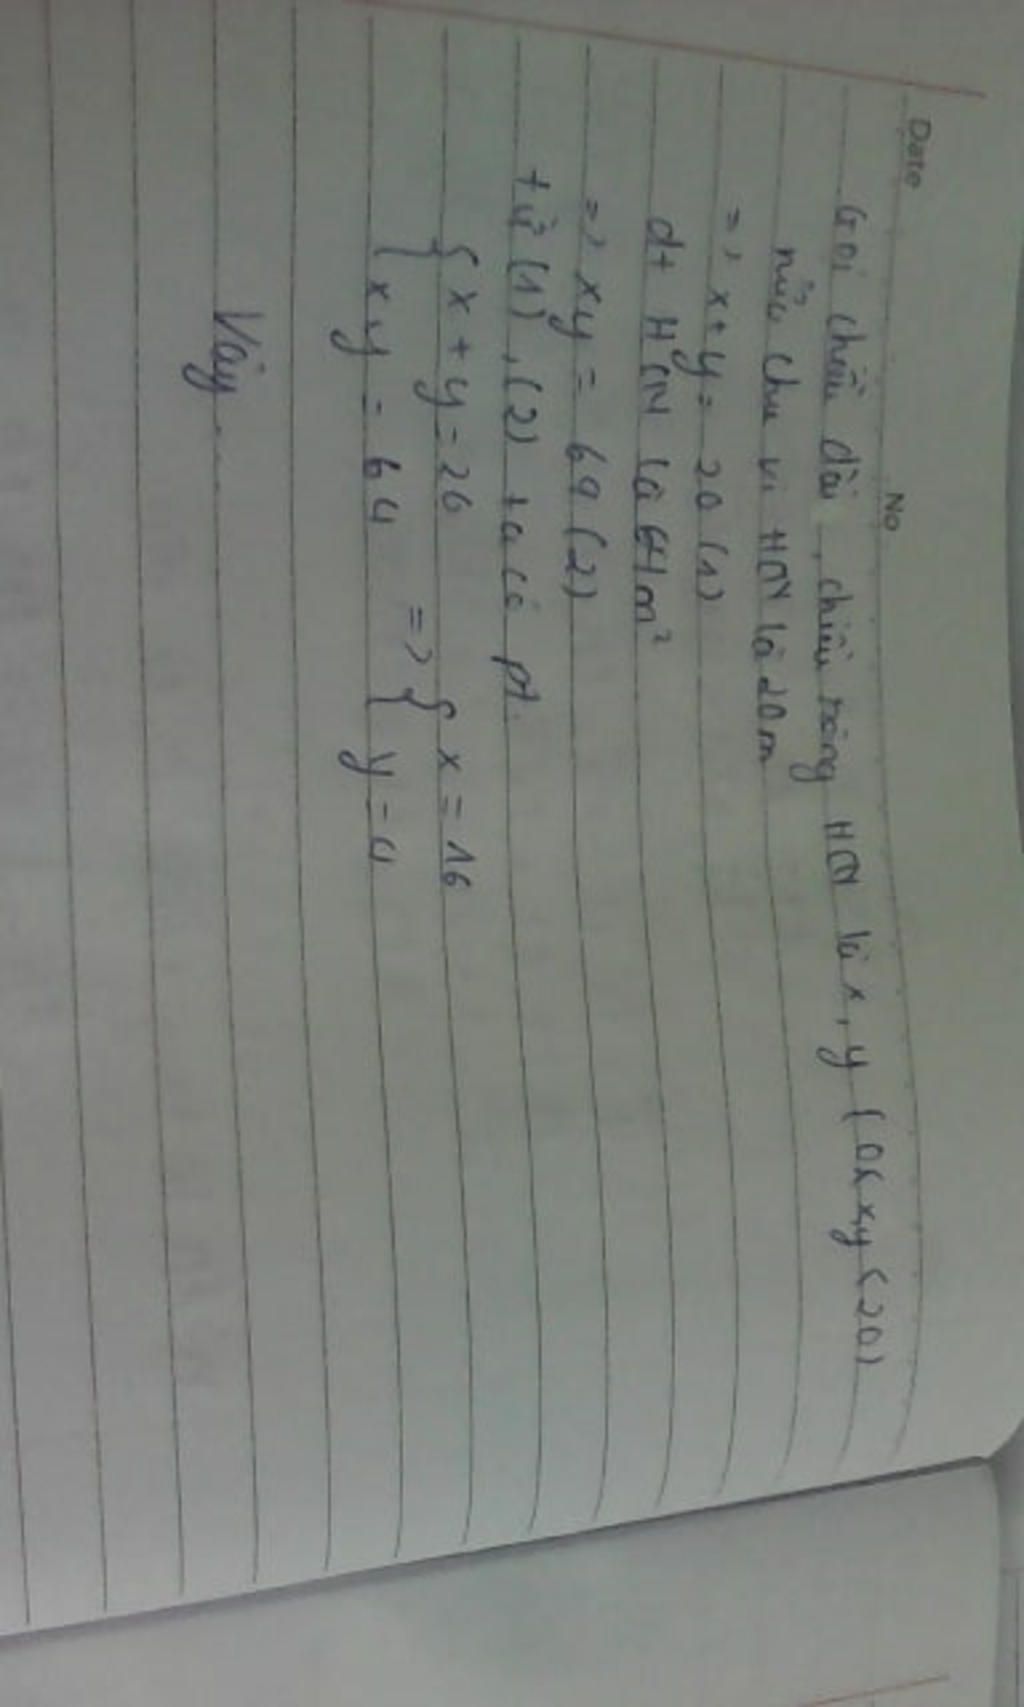 Date No
Gọi chiều dài, chiều rộng HCN là x, y (0< x,y <20)
nửa chu vi HCN là 20m
=> x+y = 20 (1)
dt HCN là 64m²
=> xy = 64 (2)
từ (1), (2) ta có pt.
{ x + y = 20
{ xy = 64 => { x = 16
{ y = 4
Vậy...